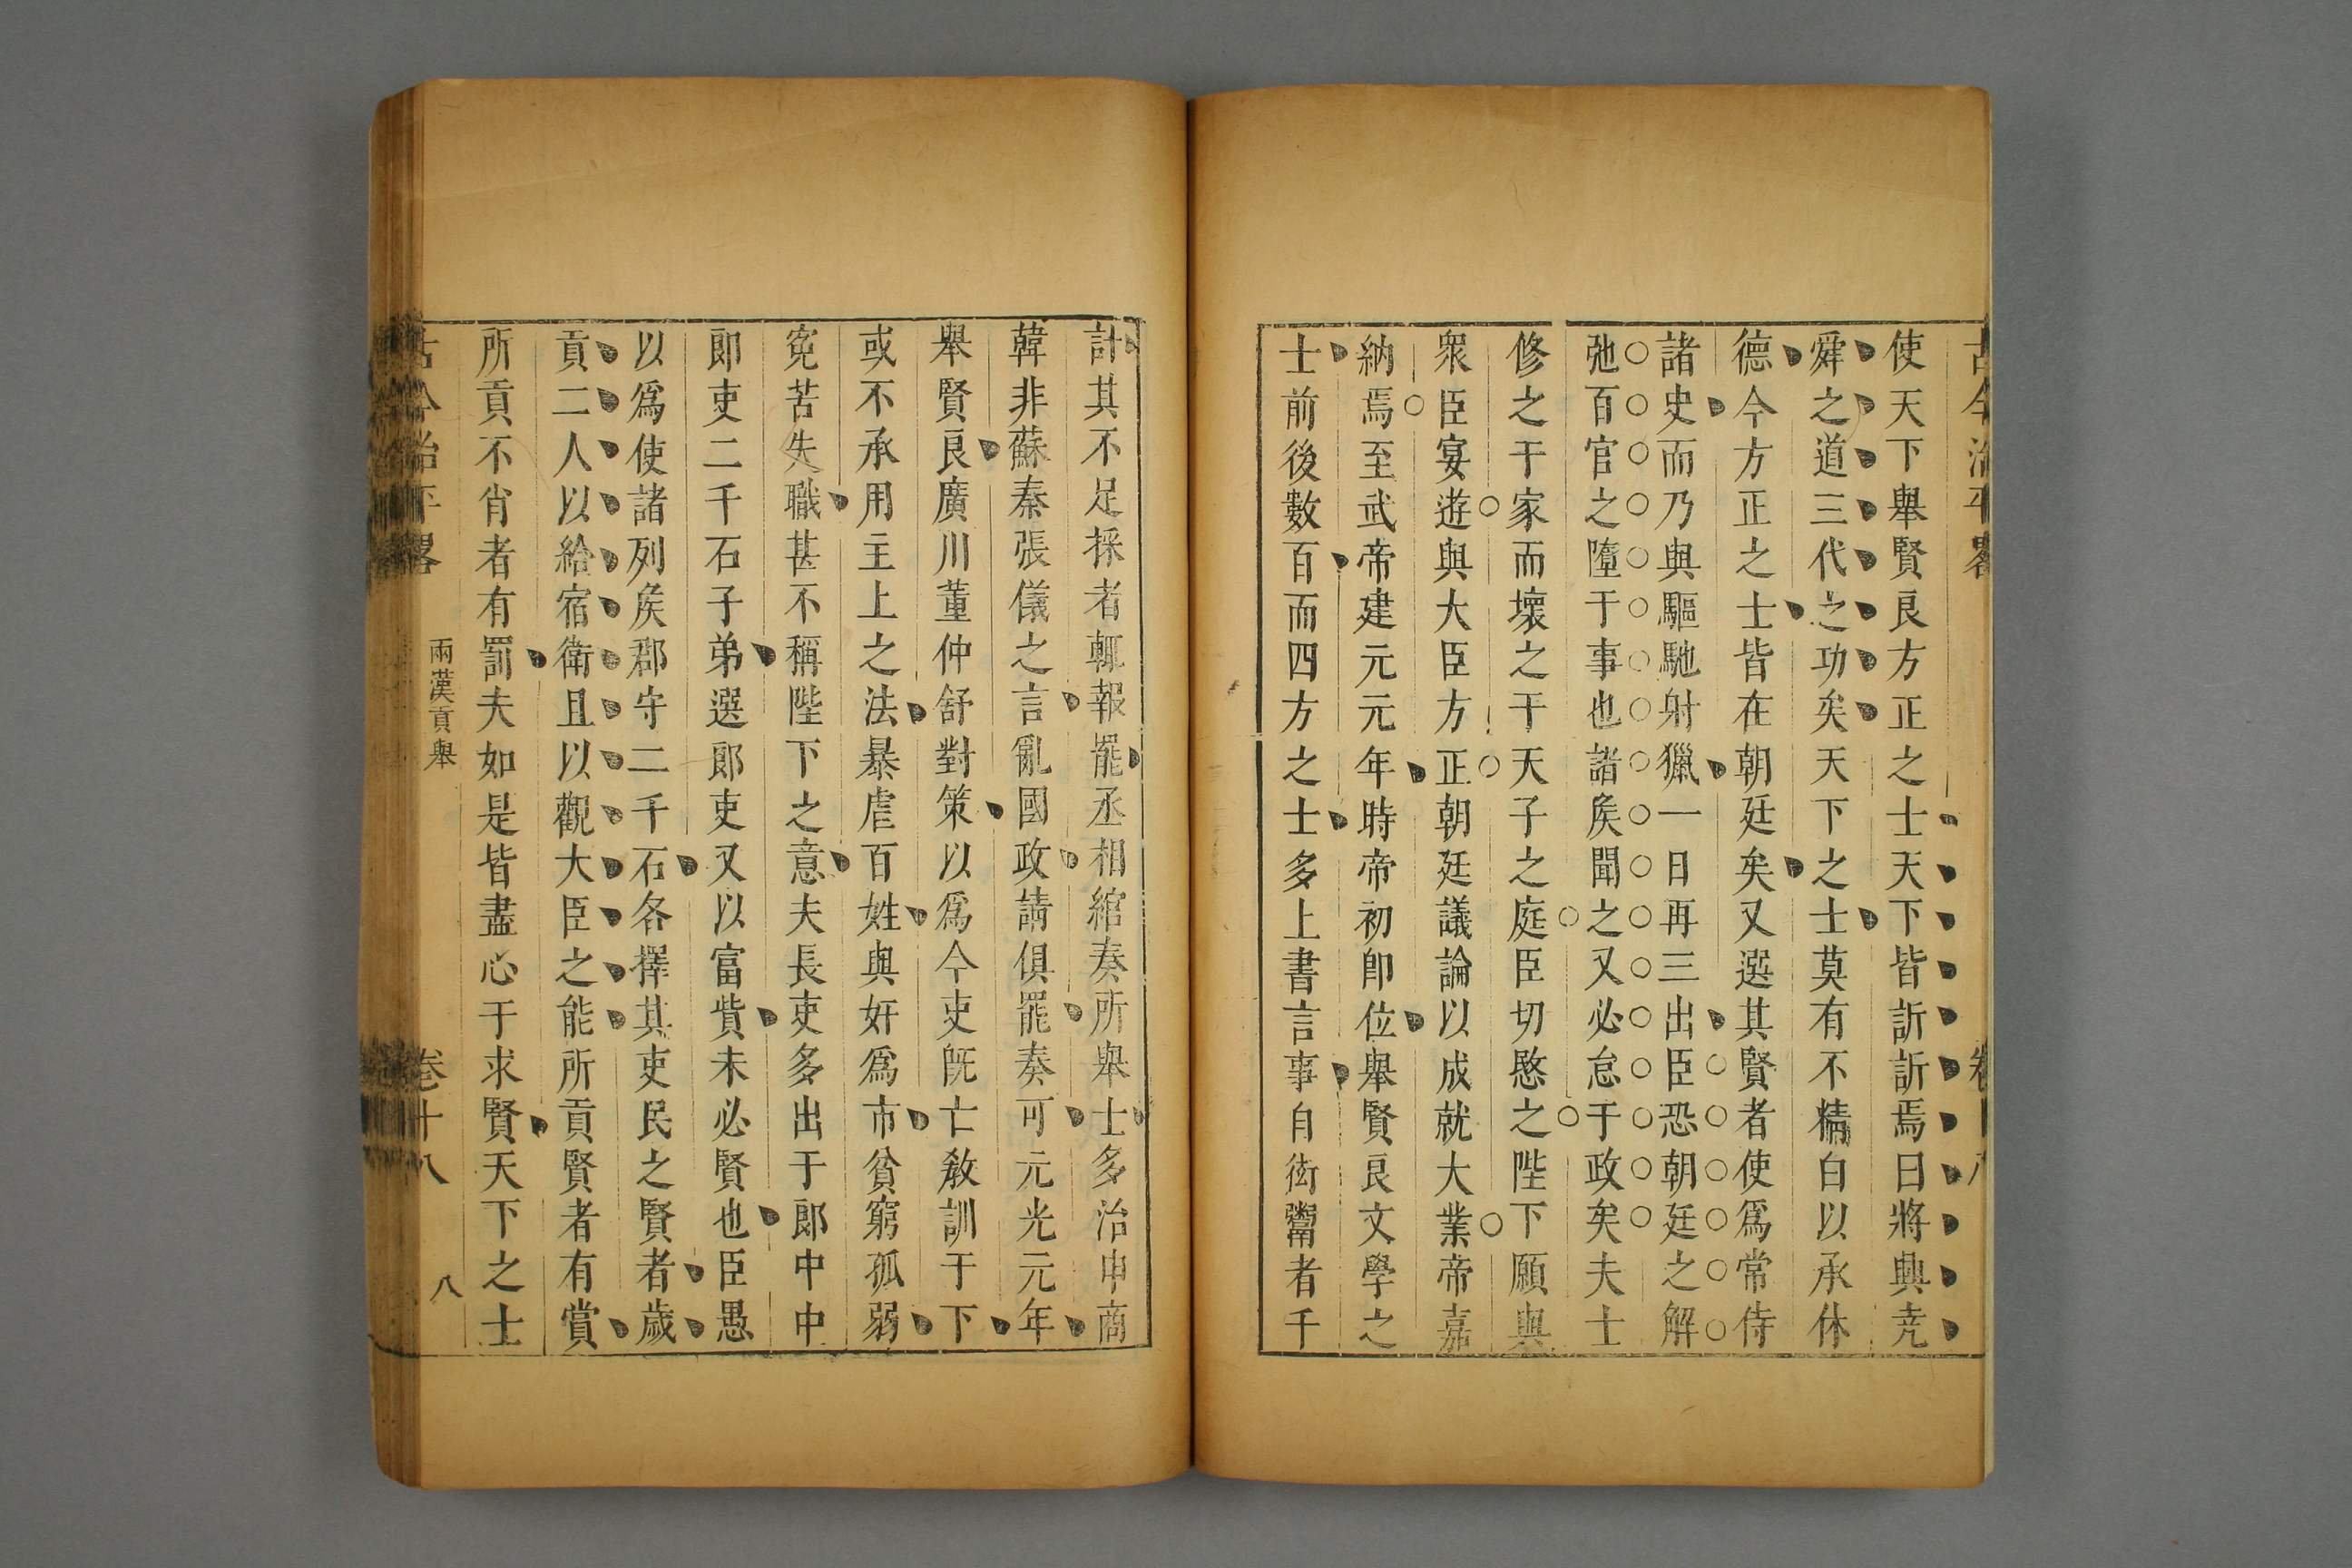 古今治平畧
卷十八
使天下舉賢良方正之士天下皆訢訢焉曰將興尭
舜之道三代之功矣天下之士莫有不精白以承休
德今方正之士皆在朝廷矣又選其賢者使爲常侍
諸吏而乃與驅馳射獵一日再三出臣恐朝廷之解
弛百官之墮于事也諸矦聞之又必怠于政矣夫士
修之于家而壞之于天子之庭臣切愍之陛下願與
衆臣宴遊與大臣方正朝廷議論以成就大業帝嘉
納焉至武帝建元元年時帝初卽位舉賢良文學之
士前後數百而四方之士多上書言事自衒鬻者千
計其不足採者輒報罷丞相綰奏所舉士多治申商
韓非蘇秦張儀之言亂國政請俱罷奏可元光元年
舉賢良廣川董仲舒對策以爲今吏旣亡敎訓于下
或不承用主上之法暴虐百姓與奸爲市貧窮孤弱
寃苦失職甚不稱陛下之意夫長吏多出于郞中中
郞吏二千石子弟選郞吏又以富貲未必賢也臣愚
以爲使諸列矦郡守二千石各擇其吏民之賢者歲
貢二人以給宿衛且以觀大臣之能所貢賢者有賞
所貢不肖者有罰夫如是皆盡心于求賢天下之士
古今治平畧
兩漢貢舉
卷十八
八